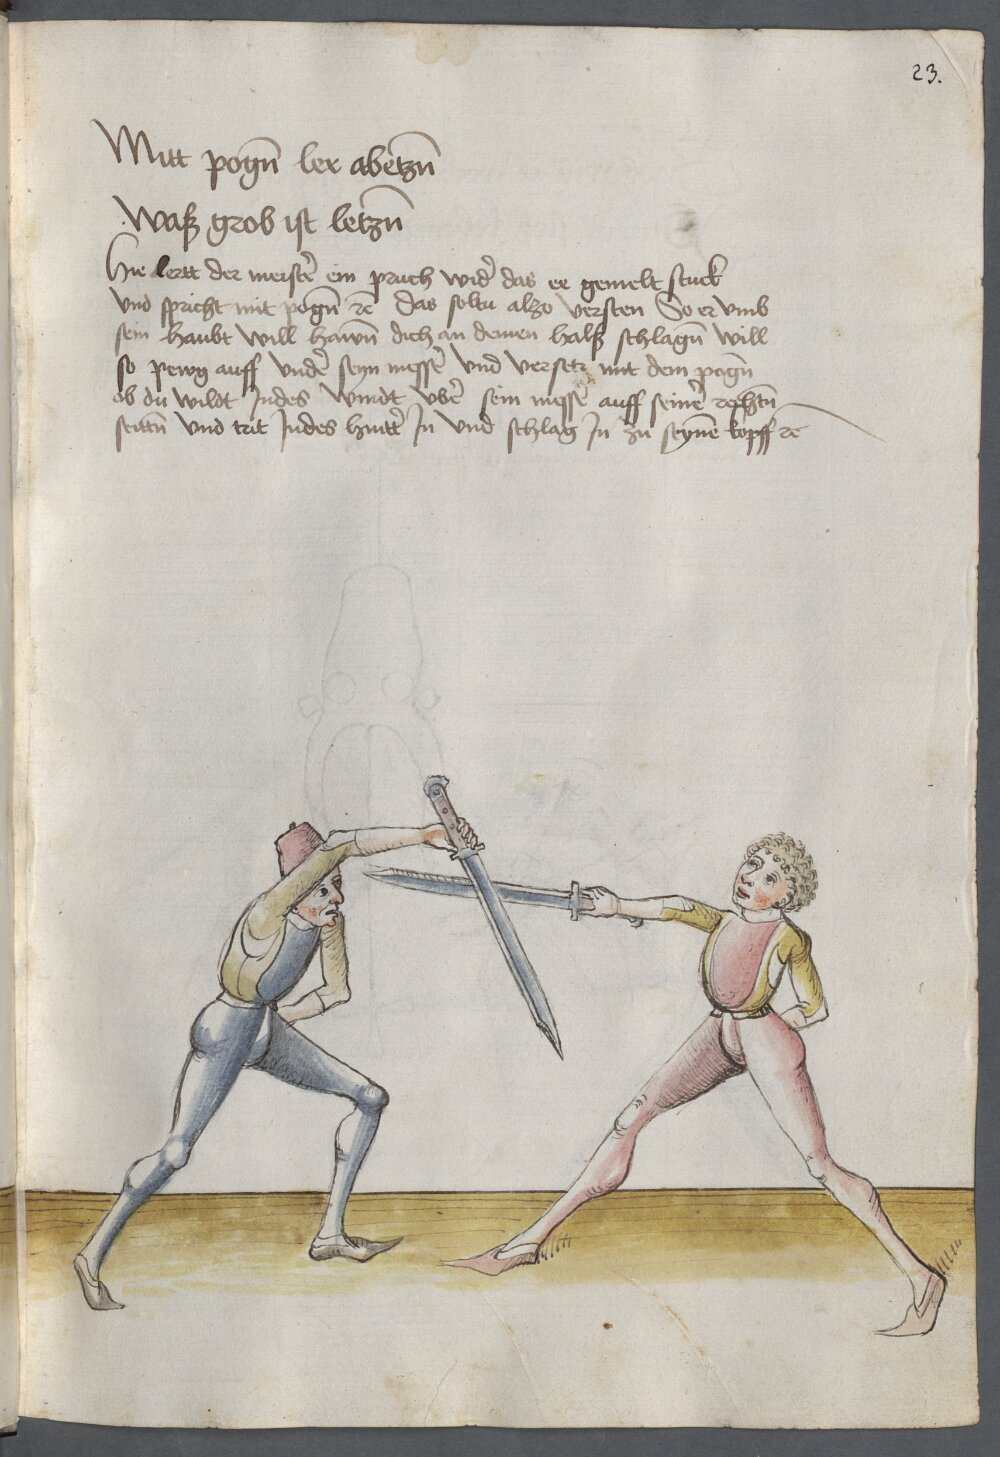 23.
Mitt pogn̄ ler abetzn̄
Waß grob ist letzn̄
Hie lertt der meistẽ ein pruch wid̃ das ee gemelt stuck
Und spricht mit pogn̄ ꝛc̄ das soltu alzo versten So er vmb
sein haubt will hawn̄ dich an deinen halß schlagn̄ will
so pewg auff vnd̃ seyn messẽ vnd versetz mit dem pogn̄
ob du wildt Jndes windt vbẽ sein messẽ auff seinẽ rechtn̄
seittn̄ vnd trit Jndes hintt̃ Jn vnd schlag Jn zu seynẽ kopff ꝛc̄